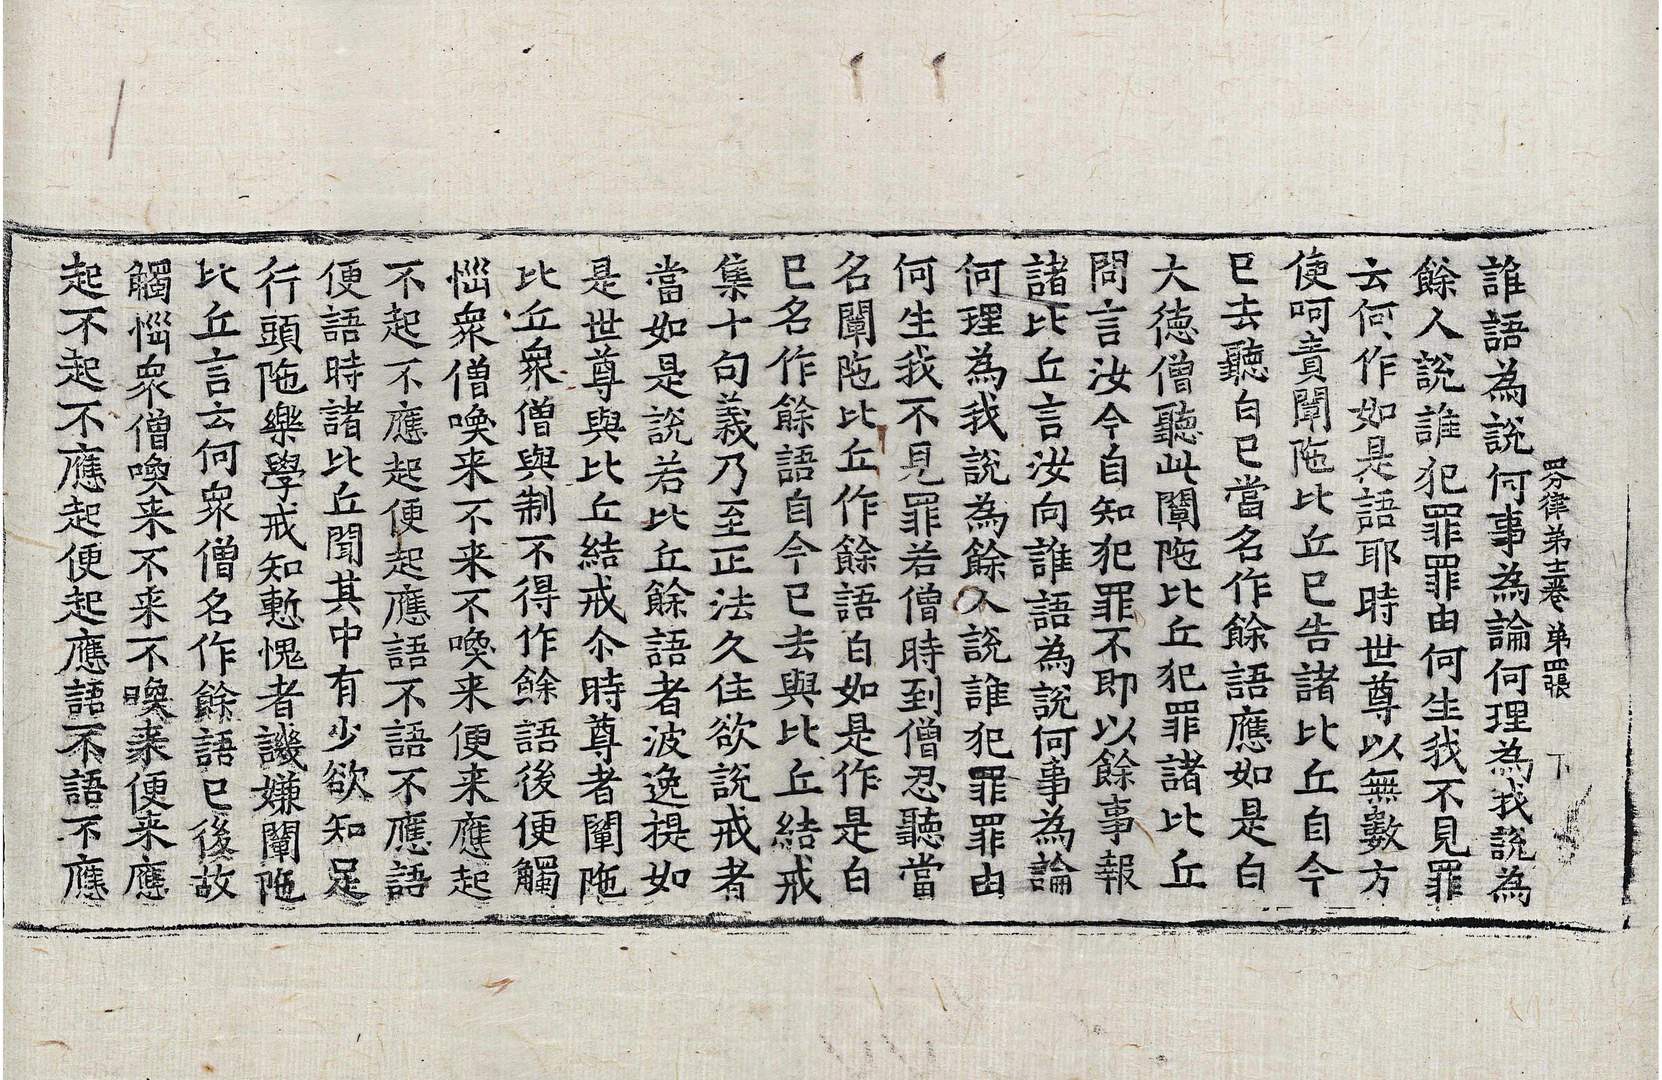 四分律弟十二卷 弟四張 下
誰語為說何事為論何理為我說為
餘人說誰犯罪罪由何生我不見罪
云何作如是語耶時世尊以無數方
便呵責闡陁比丘已告諸比丘自今
已去聽白已當名作餘語應如是白
大徳僧聽此闡陁比丘犯罪諸比丘
問言汝今自知犯罪不即以餘事報
諸比丘言汝向誰語為說何事為論
何理為我說為餘人說誰犯罪罪由
何生我不見罪若僧時到僧忍聽當
名闡陁比丘作餘語白如是作是白
已名作餘語自今已去與比丘結戒
集十句義乃至正法久住欲說戒者
當如是說若比丘餘語者波逸提如
是世尊與比丘結戒尒時尊者闡陁
比丘衆僧與制不得作餘語後便觸
惱衆僧喚来不来不喚来便来應起
不起不應起便起應語不語不應語
便語時諸比丘聞其中有少欲知足
行頭陁樂學戒知慙愧者譏嫌闡陁
比丘言云何衆僧名作餘語已後故
觸惱衆僧喚来不来不喚来便来應
起不起不應起便起應語不語不應